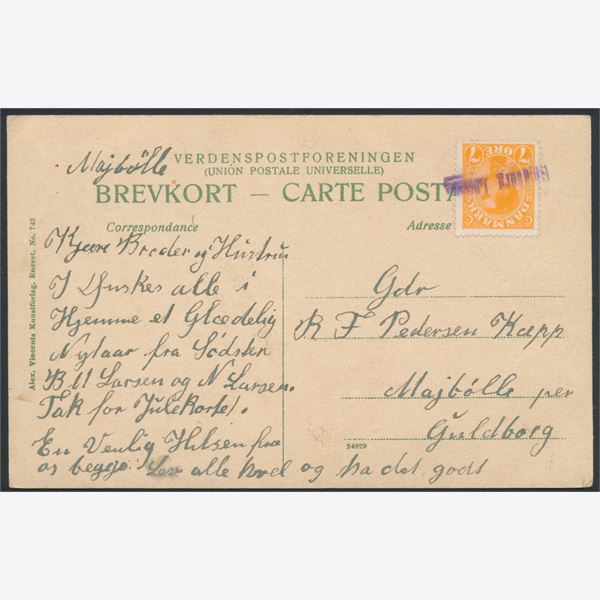 Majbølle
VERDENSPOSTFORENINGEN
(UNION POSTALE UNIVERSELLE)
BREVKORT — CARTE POSTA
Correspondance
Adresse
Kjære Broder og Hustru
I Ønskes alle i
Hjemme et Glædelig
Nytaar fra Södsten
B M Larsen og N Larsen.
Tak for Julekortet.
En Venlig Hilsen fra
os begge. Lev alle vel og ha det godt
Gdr
R F Pedersen Kæpp
Majbölle per
Guldborg
24929
Alex. Vincents Kunstforlag. Eneret. No. 743
7 ØRE 7
DANMARK